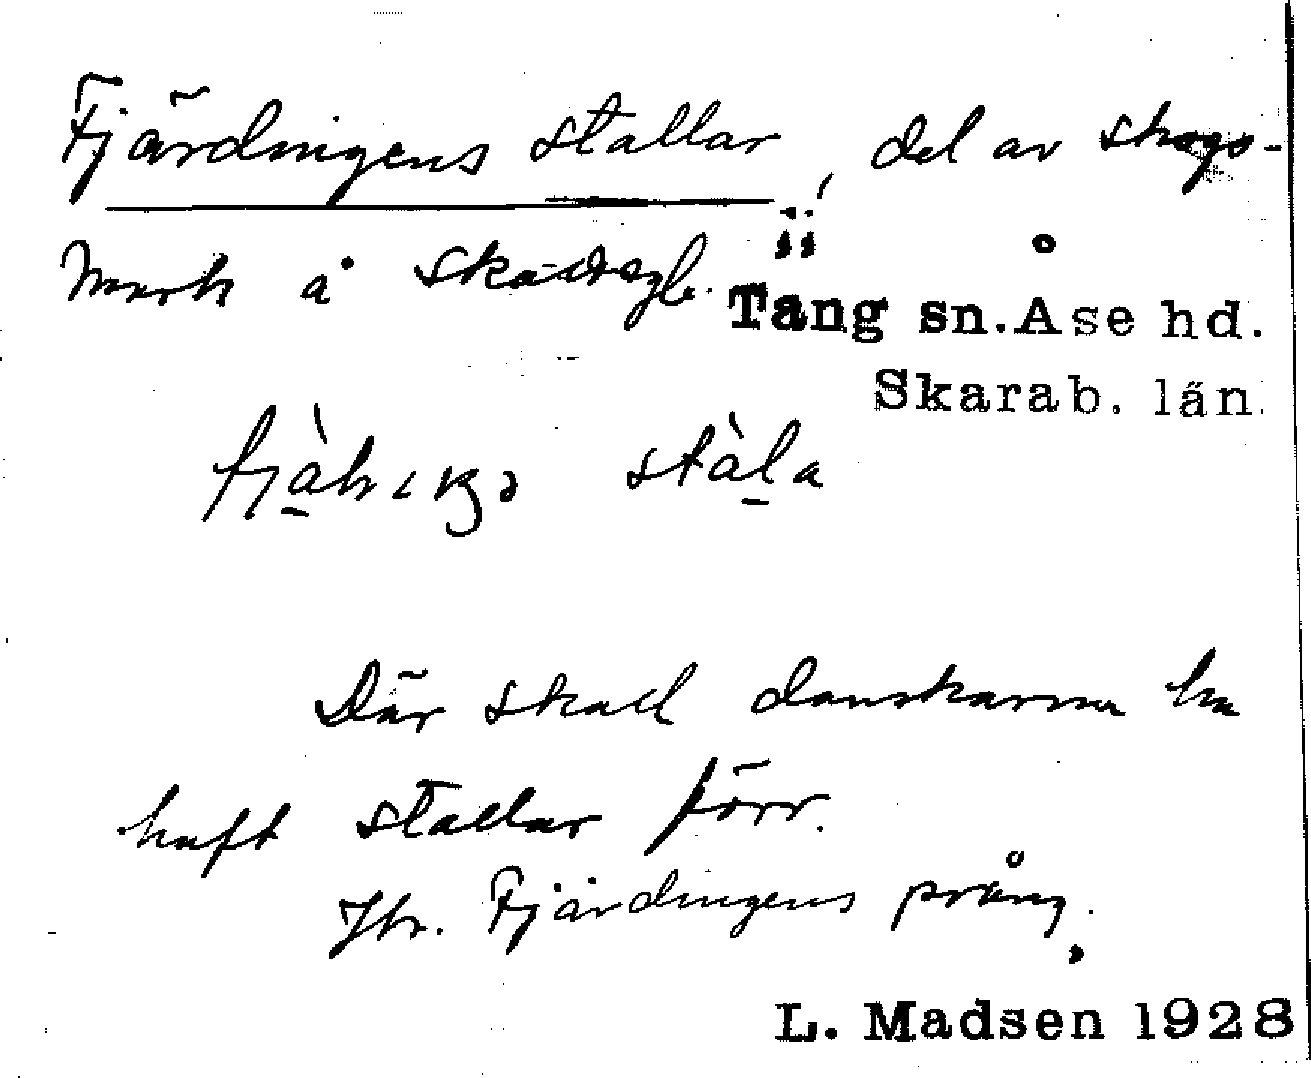 Fjärdingens stallar, del av skogs-
mark å
Täng sn. Åse hd.
Skarab. län.
stàla
Där skall danskarna ha
haft stallar förr.
Jfr. Fjärdingens prång.
L. Madsen 1928